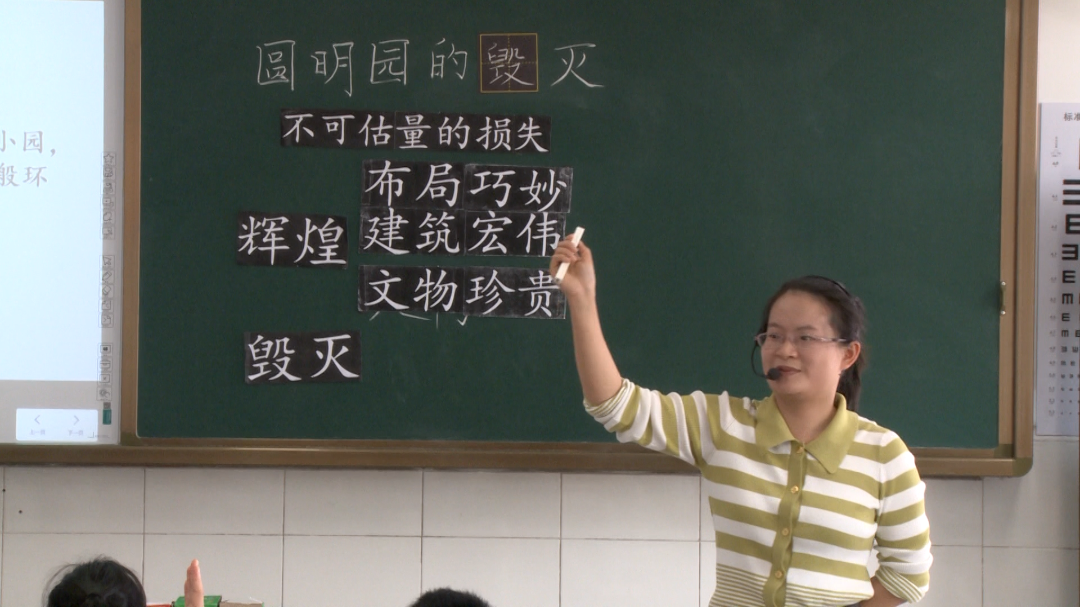 圆明园的毁灭
不可估量的损失
布局巧妙
辉煌 建筑宏伟
文物珍贵
毁灭
小园，
般环
标准